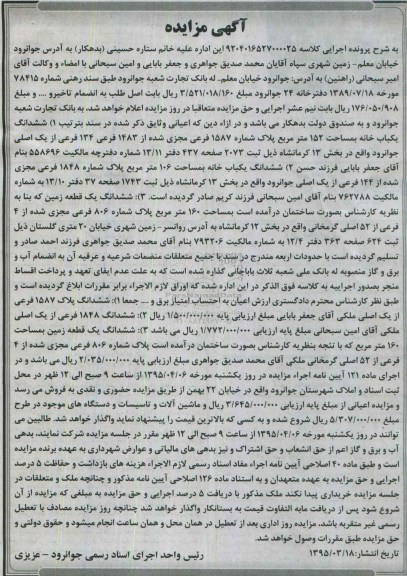 آگهی مزایده
به شرح پرونده اجرایی کلاسه ۹۲۰۴۰۱۶۵۲۷۰۰۰۰۲۵ این اداره علیه خانم ستاره حسینی (بدهکار) به آدرس جوانرود
خیابان معلم- زمین شهری سپاه آقایان محمد صدیق جواهری و جعفر بابایی و امین سبحانی با امضاء و وکالت آقای
امیر سبحانی (راهنین) به آدرس: جوانرود خیابان معلم. له بانک تجارت شعبه جوانرود طبق سند رهنی شماره ۷۸۴۱۵
مورخه ۱۳۸۹/۰۷/۱۸ دفترخانه ۲۴ جوانرود مبلغ ۳/۵۲۱/۰۱۸/۱۶۰ ریال بابت اصل طلب به انضمام تاخیرو .... و مبلغ
۱۷۶/۰۵۰/۹۰۸ ریال بابت نیم عشر اجرایی و حق مزایده متعاقبا در روز مزایده اعلام خواهد شد. به بانک تجارت شعبه
جوانرود و به صندوق دولت بدهکار می باشد و در ازاء دین که اعیانی وثایق ذکر شده در سند بترتیب ۱) ششدانگ
یکباب خانه بمساحت ۱۵۲ متر مربع پلاک شماره ۱۵۸۷ فرعی مجزی شده از ۱۴۸۳ فرعی ۱۳۴ فرعی از یک اصلی
جوانرود واقع در بخش ۱۳ کرمانشاه ذیل ثبت ۲۰۷۳ صفحه ۴۳۷ دفتر ۱۳/۱۱ شماره دفترچه مالکیت ۵۵۸۶۹۶ بنام
آقای جعفر بابایی فرزند حسن ۲) ششدانگ یکباب خانه بمساحت ۱۰۶ متر مربع پلاک شماره ۱۸۴۸ فرعی مجزی
شده از ۱۴۴ فرعی از یک اصلی جوانرود واقع در بخش ۱۳ کرمانشاه ذیل ثبت ۱۷۴۳ صفحه ۳۷ دفتر ۱۳/۱۰ به شماره
مالکیت ۷۶۲۷۸۸ بنام آقای امین سبحانی فرزند کریم صادر گردیده است. ۳): ششدانگ یک قطعه زمین که بنا به
نظریه کارشناس بصورت ساختمان درآمده است بمساحت ۱۶۰ متر مربع پلاک شماره ۸۰۶ فرعی مجزی شده از ۴
فرعی از ۵۲ اصلی گرمخانی واقع در بخش ۱۲ کرمانشاه به آدرس روانسر- زمین شهری خیابان ۲۰ متری گلستان ذیل
ثبت ۶۲۴ صفحه ۳۶۳ دفتر ۱۲/۴ به شماره مالکیت ۷۹۳۲۰۶ بنام آقای محمد صدیق جواهری فرزند احمد صادر و
تسلیم گردیده است با حدودات اربعه مندرج در سند با جمیع متعلقات منضمات شرعیه و عرفیه آن به انضمام آب و
برق و گاز منصوبه له بانک ملی شعبه ثلاث باباجانی گذارده شده است که به علت عدم ایفای تعهد و پرداخت اقساط
منجر بصدور اجراییه به کلاسه فوق الذکر در این اداره شده که اوراق لازم الاجراء برابر مقررات ابلاغ گردیده است و
طبق نظر کارشناس محترم دادگستری ارزش اعیان به احتساب امتیاز برق و .... جمعا ۱): ششدانگ پلاک ۱۵۸۷ فرعی
از یک اصلی ملکی آقای جعفر بابایی مبلغ ارزیابی پایه ۱/۵۰۰/۰۰۰/۰۰۰ ریال ۲): ششدانگ ۱۸۴۸ فرعی از یک اصلی
ملکی آقای امین سبحانی مبلغ پایه ارزیابی ۱/۷۷۲/۰۰۰/۰۰۰ ریال می باشد ۳): ششدانگ یک قطعه زمین بمساحت
۱۶۰ متر مربع که با نتجه بنظریه کارشناس بصورت ساختمان درآمده است پلاک شماره ۸۰۶ فرعی مجزی شده از ۴
فرعی از ۵۲ اصلی گرمخانی ملکی آقای محمد صدیق جواهری مبلغ ارزیابی پایه ۲/۰۳۵/۰۰۰/۰۰۰ ریال می باشد و در
اجرای ماده ۱۲۱ آیین نامه اجراء مزایده در روز یکشنبه مورخه ۱۳۹۵/۰۴/۰۶ از ساعت ۹ صبح الی ۱۲ ظهر در محل
ثبت اسناد و املاک شهرستان جوانرود واقع در خیابان ۲۲ بهمن از طریق مزایده حضوری و نقدی به فروش می رسد
و مزایده اعیانی از مبلغ پایه ارزیابی ۳/۶۴۵/۰۰۰/۰۰۰ ریال و ماشین آلات و تاسیسات و دستگاه های موجود در طرح
مبلغ ۵/۳۰۷/۰۰۰/۰۰۰ ریال شروع شده و به کسی که بالاترین قیمت را پیشنهاد نماید واگذار خواهد شد. طالبین می
توانند در روز یکشنبه مورخه ۱۳۹۵/۰۴/۰۶ از ساعت ۹ صبح الی ۱۲ ظهر مقرر در جلسه مزایده شرکت نمایند، بدهی
آب و برق و گاز اعم از حق انشعاب و حق اشتراک و نیز بدهی های مالیاتی و عوارض شهرداری به عهده برنده مزایده
است و طبق ماده ۴۰ اصلاحی آیین نامه اجراء مفاد اسناد رسمی لازم الاجراء هزینه های بازداشت و حفاظت ۵ درصد
اجرایی و حق مزایده به عهده متعهدان و به استناد ماده ۱۲۶ اصلاحی آیین نامه مذکور و چنانچه ملک و متعلقات در
جلسه مزایده خریداری پیدا نکند ملک مذکور با دریافت ۵ درصد اجرایی و حق مزایده به مبلغی که مزایده از آن
شروع شود پس از دریافت مابه التفاوت قیمت به بستانکار واگذار خواهد شد چنانچه روز مزایده مصادف با تعطیل
رسمی غیر متقربه باشد، مزایده روز اداری بعد از تعطیل در همان محل و همان ساعت انجام میشود و حقوق دولتی و
حق مزایده طبق مقررات وصول خواهد شد.
تاریخ انتشار: ۱۳۹۵/۰۳/۱۸
رئیس واحد اجرای اسناد رسمی جوانرود - عزیزی